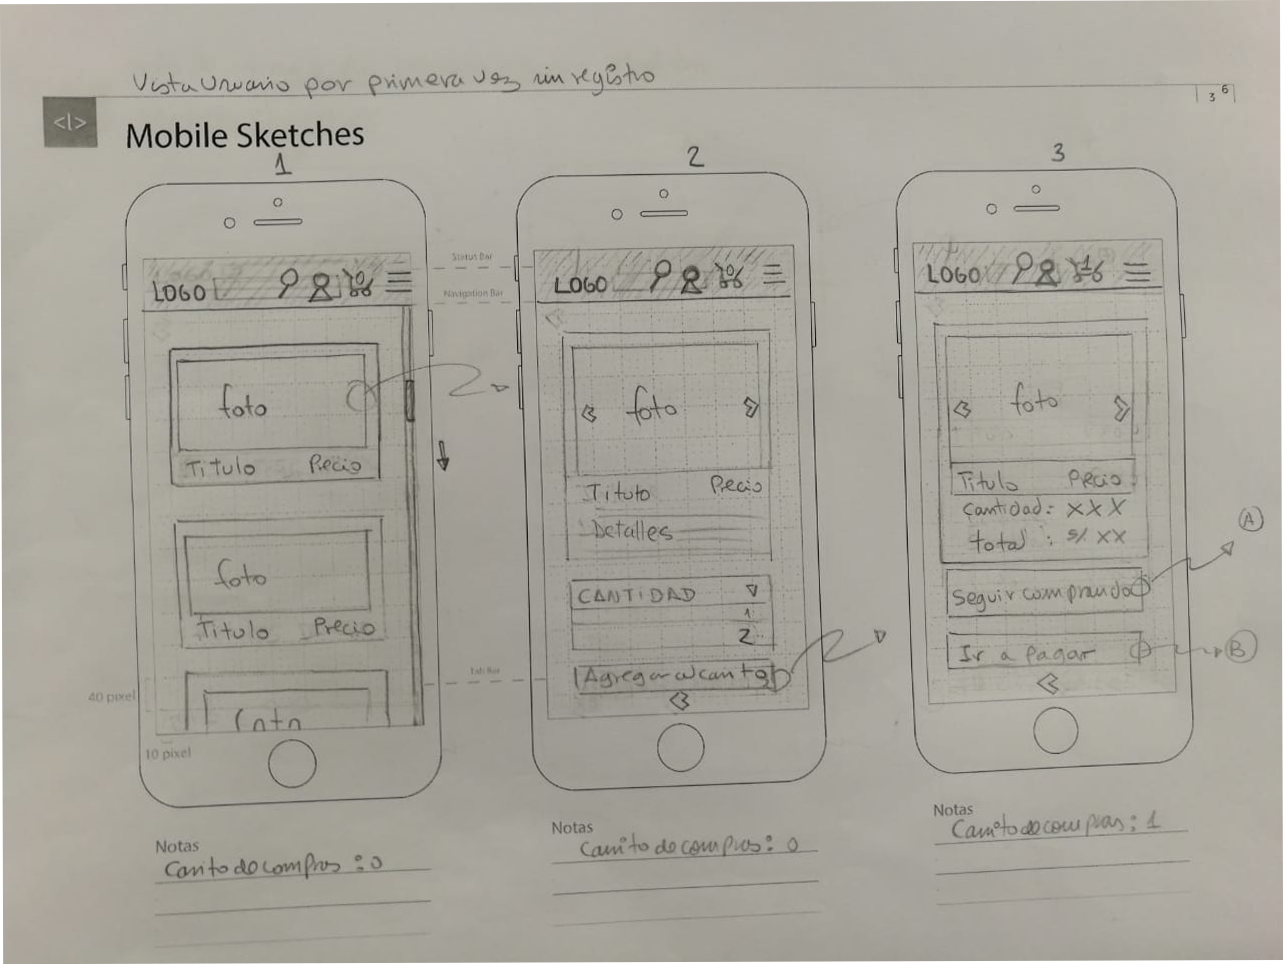 Vista Usuario por primera vez sin registro
3 6
<|>
Mobile Sketches
1
LOGO
0
foto
Titulo Precio
foto
Titulo Precio
foto
40 pixel
10 pixel
Notas
Carrito de compras : 0
Status Bar
Navigation Bar
Tab Bar
2
LOGO
0
foto
Titulo Precio
Detalles
CANTIDAD
1
2
Agregar al carrito
Notas
Carrito de compras : 0
3
LOGO
1
foto
Titulo Precio
Cantidad: XXX
total : S/. XX
Seguir comprando
A
Ir a pagar
B
Notas
Carrito de compras : 1